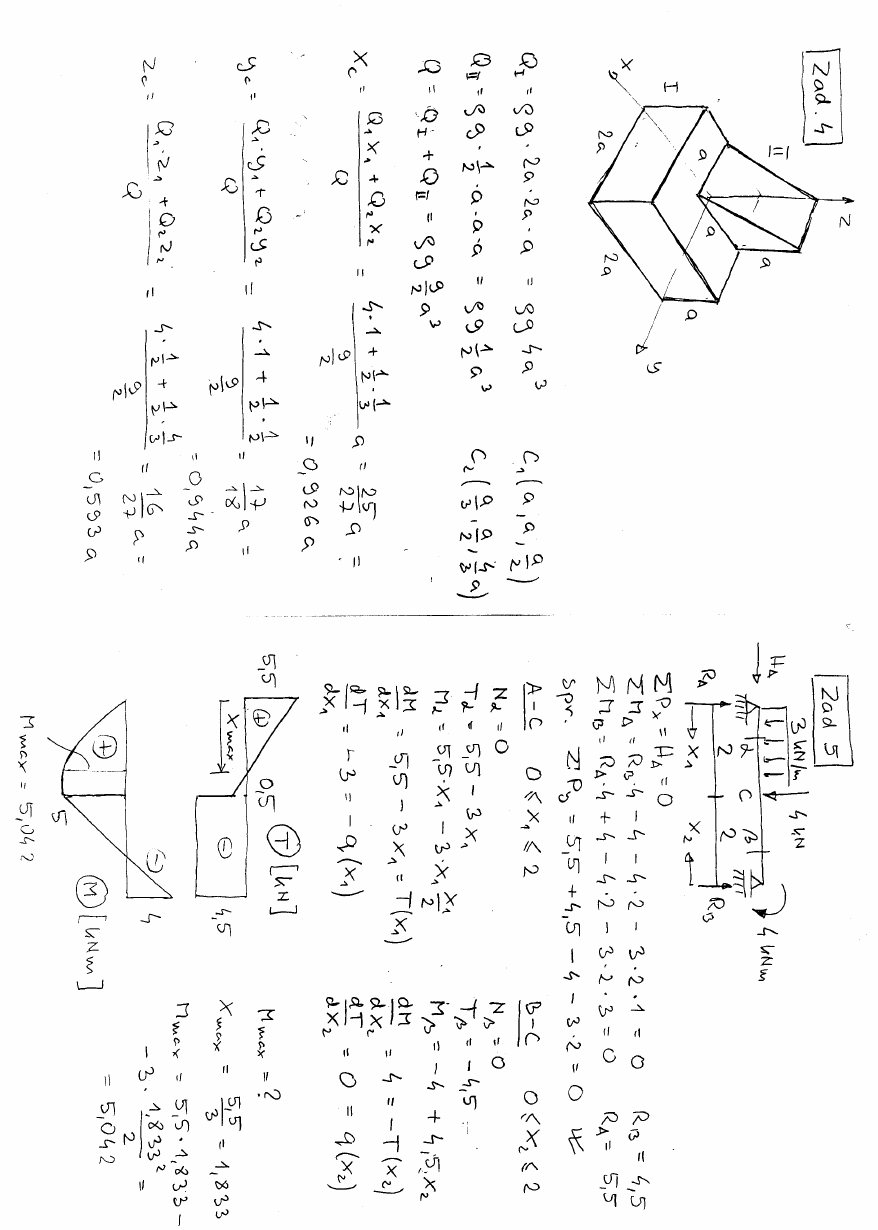 Zad. 4
z
III
a
I
a
a
x
y
2a
2a
a
Q_I = ρg·2a·2a·a = ρg 4a³    C₁(a, a, a/2)
Q_II = ρg·1/2·a·a·a = ρg 1/2 a³    C₂(a/3, a/2, 4/3 a)
Q = Q_I + Q_II = ρg 9/2 a³
x_c = (Q₁x₁ + Q₂x₂)/Q = (4·1 + 1/2·1/3)/(9/2) a = 25/27 a =
= 0,926a
y_c = (Q₁·y₁ + Q₂y₂)/Q = (4·1 + 1/2·1/2)/(9/2) = 17/18 a =
= 0,944a
z_c = (Q₁·z₁ + Q₂z₂)/Q = (4·1/2 + 1/2·4/3)/(9/2) = 16/27 a =
= 0,593a
Zad 5
3 kN/m 4 kN
H_A 4 kNm
α C β
2 2
R_A x₁ x₂ R_B
ΣPx = H_A = 0
ΣM_A = R_B·4 - 4 - 4·2 - 3·2·1 = 0    R_B = 4,5
ΣM_B = R_A·4 + 4 - 4·2 - 3·2·3 = 0    R_A = 5,5
Spr. ΣPy = 5,5 + 4,5 - 4 - 3·2 = 0
A-C 0 ≤ x₁ ≤ 2
N_α = 0
T_α = 5,5 - 3x₁
M_α = 5,5·x₁ - 3·x₁ x₁/2
dM/dx₁ = 5,5 - 3x₁ = T(x₁)
dT/dx₁ = -3 = -q(x₁)
B-C 0 ≤ x₂ ≤ 2
N_β = 0
T_β = -4,5
M_β = -4 + 4,5·x₂
dM/dx₂ = 4 = -T(x₂)
dT/dx₂ = 0 = q(x₂)
5,5 + 0,5 - 4,5 T [kN]
xmax
+ - 5 4 M [kNm]
Mmax = 5,042
Mmax = ?
xmax = 5,5/3 = 1,833
Mmax = 5,5·1,833 -
- 3·1,833²/2 =
= 5,042